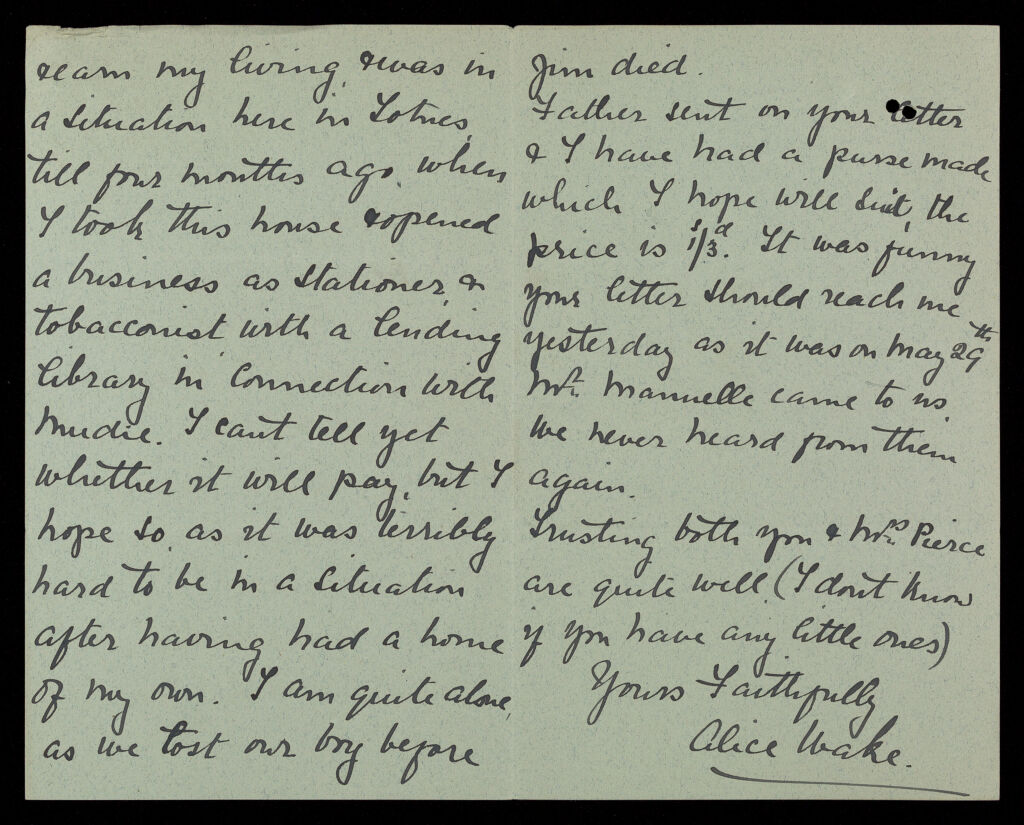 & earn my living, & was in
a situation here in Totnes,
till four months ago, when
I took this house & opened
a business as Stationer &
tobacconist with a lending
library in connection with
Mudie. I can't tell yet
whether it will pay, but I
hope so, as it was terribly
hard to be in a situation
after having had a home
of my own. I am quite alone,
as we lost our boy before
Jim died.
Father sent on your letter
& I have had a purse made
which I hope will suit, the
price is 1s/3d. It was funny
your letter should reach me
yesterday as it was on May 29th
Mr. Mannelle came to us.
We never heard from them
again.
Trusting both you & Mrs Pierce
are quite well. (I don't know
if you have any little ones)
Yours Faithfully
Alice Wake.